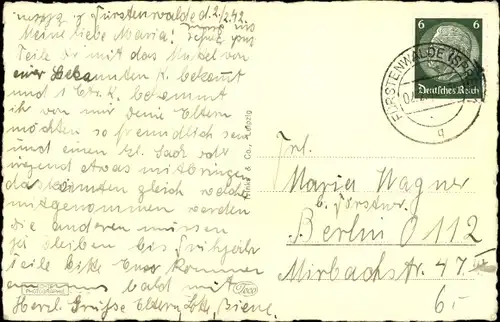 Fürstenwalde d. 2/2.42
Meine liebe Maria!
Teile Dir mit das Mukel von
eurer Bekannten K. bekommt
und 1 Ctr. K. bekommt
ihr von mir deine Eltern
möchten so freundlich sein
und einen kl. Sack voll
irgend etwas mitbringen
da könnten gleich welche
mitgenommen werden
die anderen müssen
ja bleiben bis Frühjahr
Teile bitte Euer Kommen
bald mit
Herzl. Grüsse Eltern, Lotte, Biene.
6 6
Deutsches Reich
FÜRSTENWALDE (SPREE)
q
& Co., Leipzig
Frl.
Maria Wagner
b. Förstner
Berlin O 112
Mirbachstr. 47
6.-